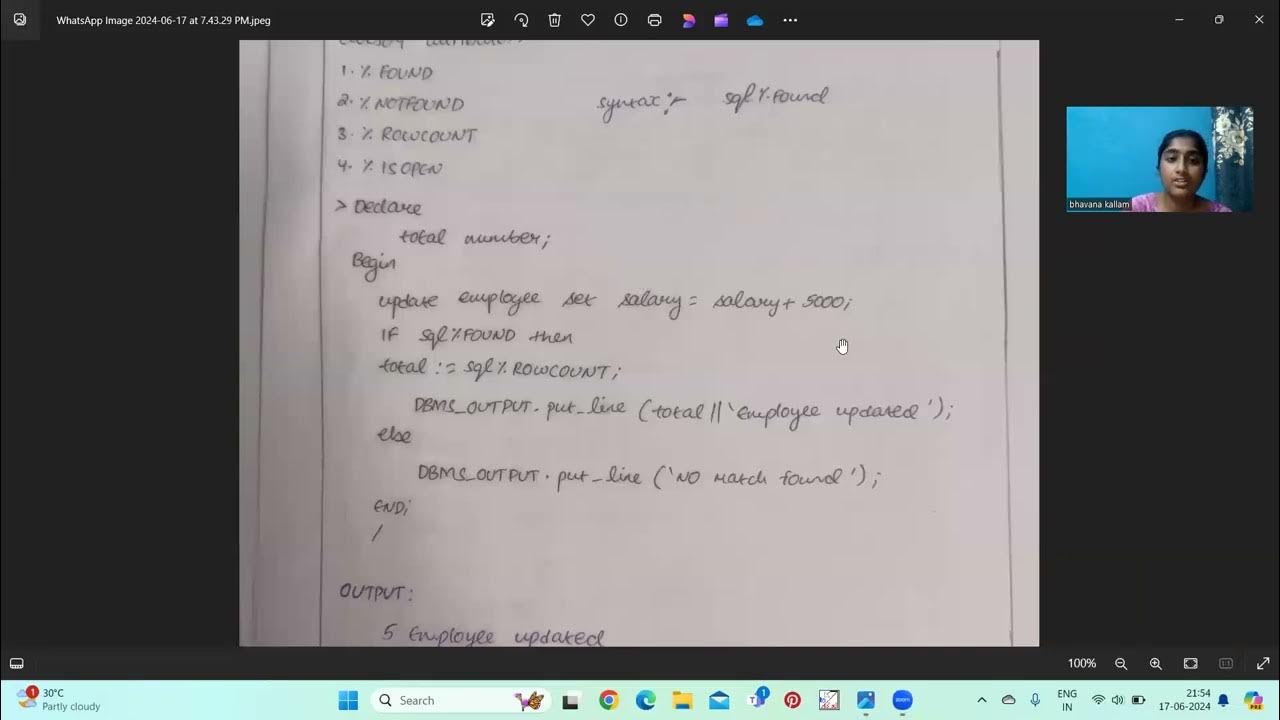 WhatsApp Image 2024-06-17 at 7.43.29 PM.jpeg
1. % FOUND
2. % NOTFOUND
syntax :- sql%.Found
3. % ROWCOUNT
4. % ISOPEN
> Declare
total number;
Begin
update employee set salary = salary + 5000;
IF sql%FOUND then
total := sql%.ROWCOUNT;
DBMS_OUTPUT.put_line (total || 'Employee updated');
else
DBMS_OUTPUT.put_line ('NO Match found');
END;
/
OUTPUT:
5 Employee updated
bhavana kallam
100%
1
30°C
Partly cloudy
Search
1
zoom
PRE
ENG
IN
21:54
17-06-2024